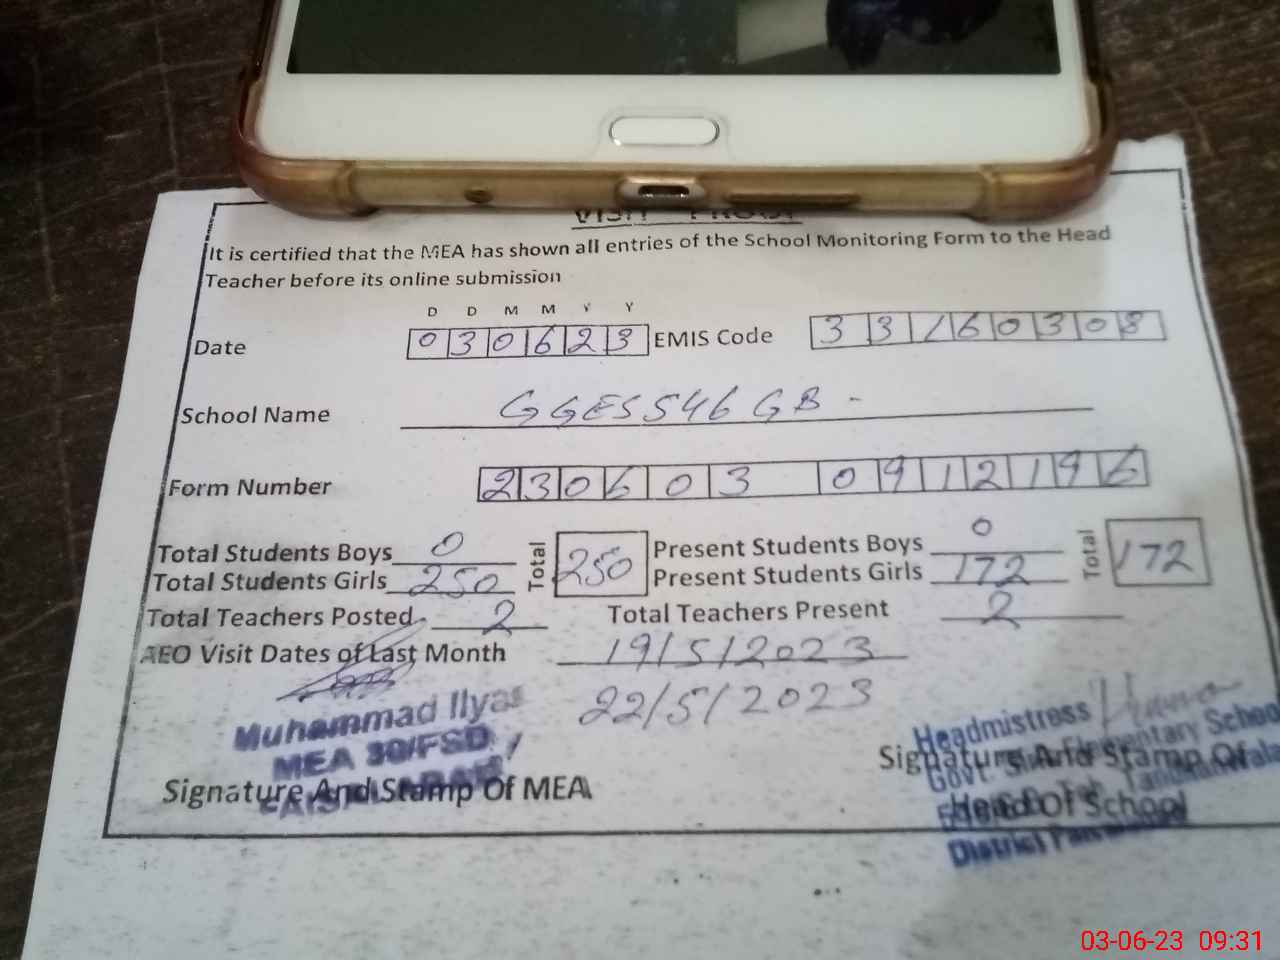 VISIT PROOF
It is certified that the MEA has shown all entries of the School Monitoring Form to the Head
Teacher before its online submission
D D M M Y Y
Date 0 3 0 6 2 3 EMIS Code 3 3 1 6 0 3 0 8
School Name GGES 546 GB -
Form Number 2 3 0 6 0 3 0 9 1 2 1 9 6
Total Students Boys 0 Total 250 Present Students Boys 0 Total 172
Total Students Girls 250 Present Students Girls 172
Total Teachers Posted 2 Total Teachers Present 2
AEO Visit Dates of Last Month 19/5/2023
22/5/2023
Muhammad Ilyas
MEA 30/FSD
FAISALABAD
Signature And Stamp Of MEA
Headmistress
Govt. Elementary School
District
Signature And Stamp Of
Head Of School
03-06-23 09:31